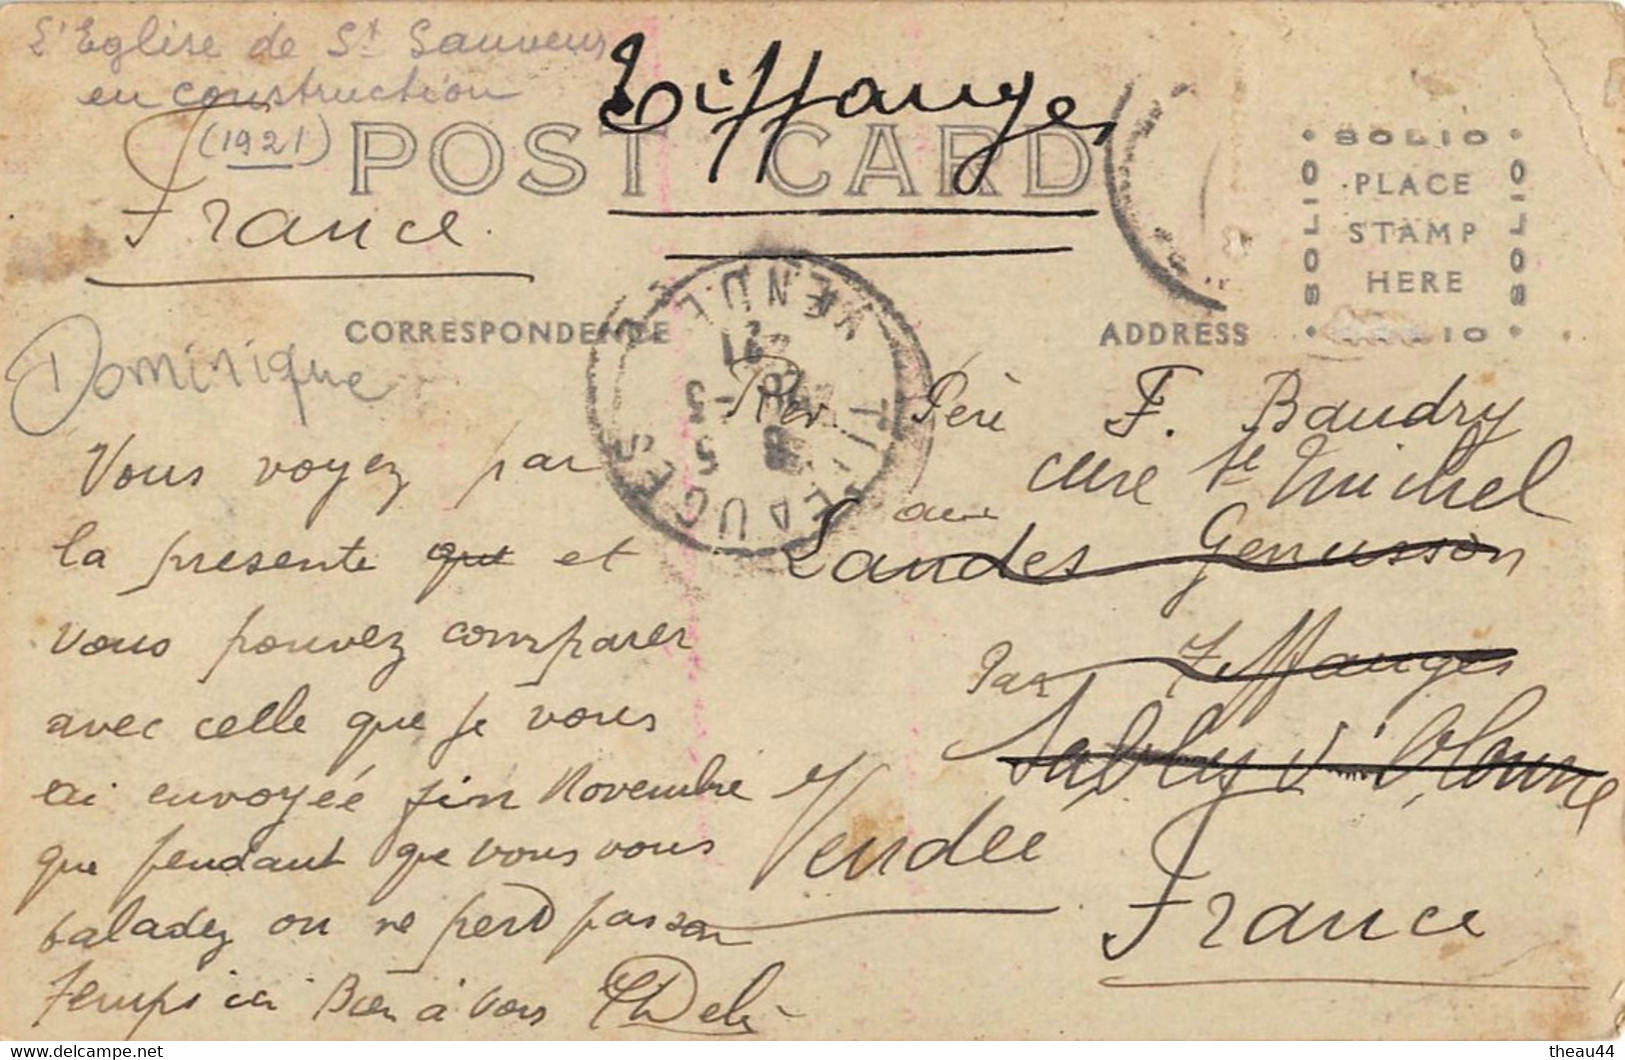 L'Eglise de St Sauveur
en construction
(1921)
Tiffauges
POST CARD
France
SOLIO
SOLIO PLACE STAMP HERE SOLIO
SOLIO
VENDEE
TIFFAUGES
CORRESPONDENCE
ADDRESS
Dominique
Rev. Père F. Baudry
cure St Michel
aux
Landes Genusson
Par Tiffauges
Vendée
France
Vous voyez par
la presente que et
vous pouvez comparer
avec celle que je vous
ai envoyée fin Novembre
que pendant que vous vous
baladez on ne perd pas son
temps ici Bien à vous
theau44